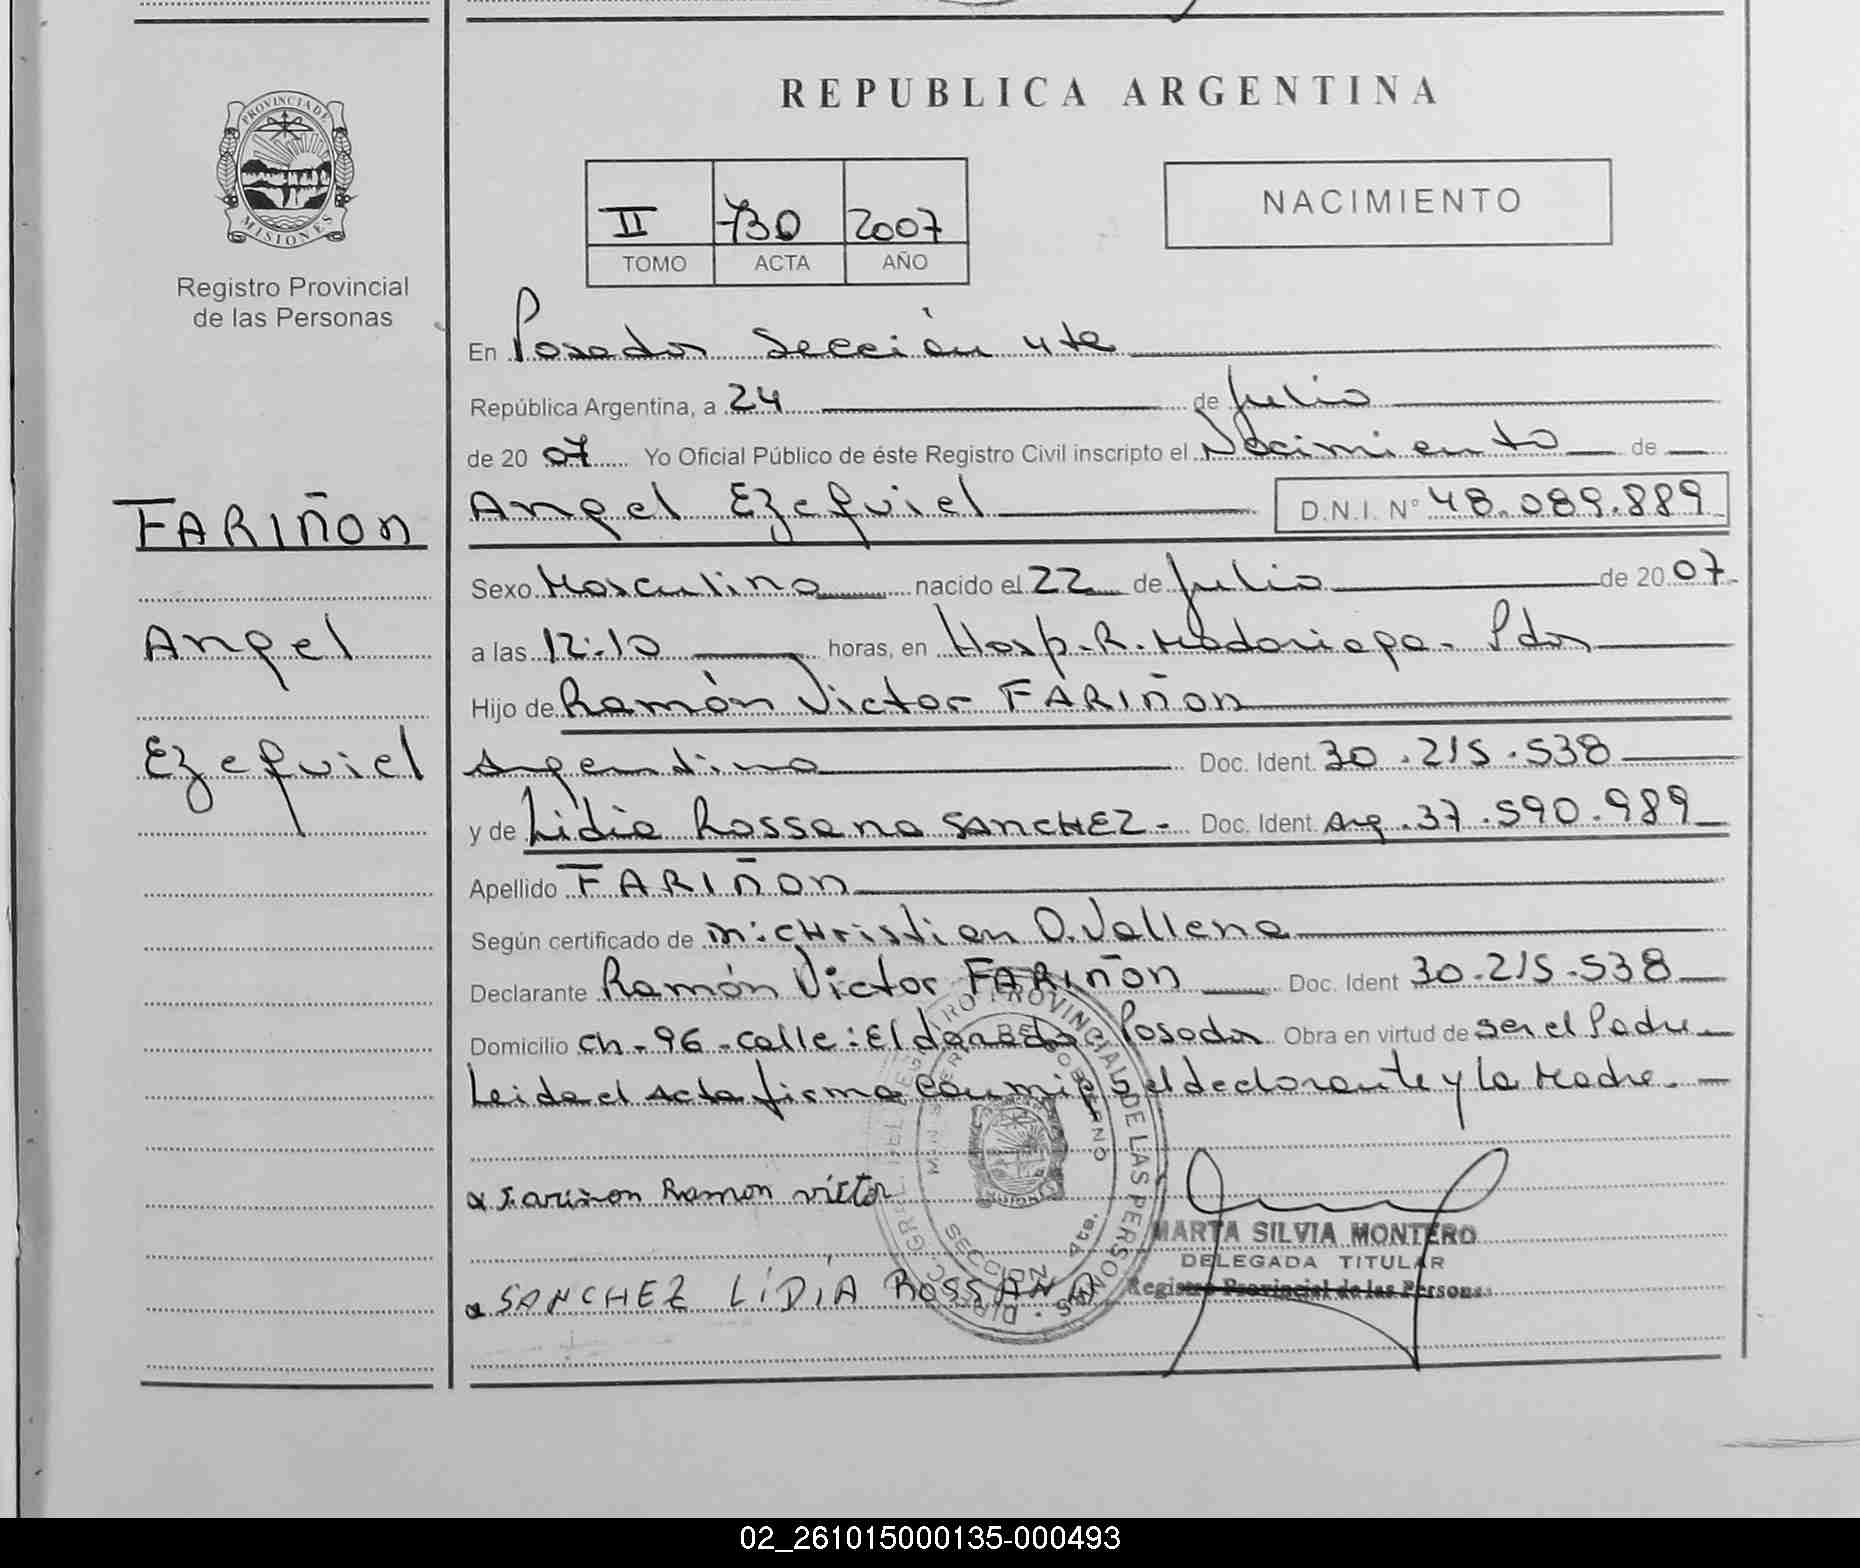 PROVINCIA DE
MISIONES
Registro Provincial
de las Personas
FARIÑON
Angel
Ezequiel
REPUBLICA ARGENTINA
II 730 2007
TOMO ACTA AÑO
NACIMIENTO
En Posadas Sección 4ta
República Argentina, a 24 de Julio
de 20 07 Yo Oficial Público de éste Registro Civil inscripto el Nacimiento de
Angel Ezequiel D.N.I. N° 48.089.889
Sexo Masculino nacido el 22 de Julio de 20 07
a las 12:10 horas, en Hosp. R. Madariaga - Pdas
Hijo de Ramón Victor FARIÑON
Argentino Doc. Ident. 30.215.538
y de Lidia Rossana SANCHEZ - Doc. Ident. Arg. 37.590.989
Apellido FARIÑON
Según certificado de m: CHristian O. Vallena
Declarante Ramón Victor FARIÑON Doc. Ident 30.215.538
Domicilio CH-96-calle: El dorado Posadas Obra en virtud de ser el Padre
Leida el Acta firma conmigo el declarante y la Madre.
Fariñon Ramon victor
MARTA SILVIA MONTERO
DELEGADA TITULAR
Registro Provincial de las Personas
SANCHEZ LIDIA ROSSANA
02_261015000135-000493